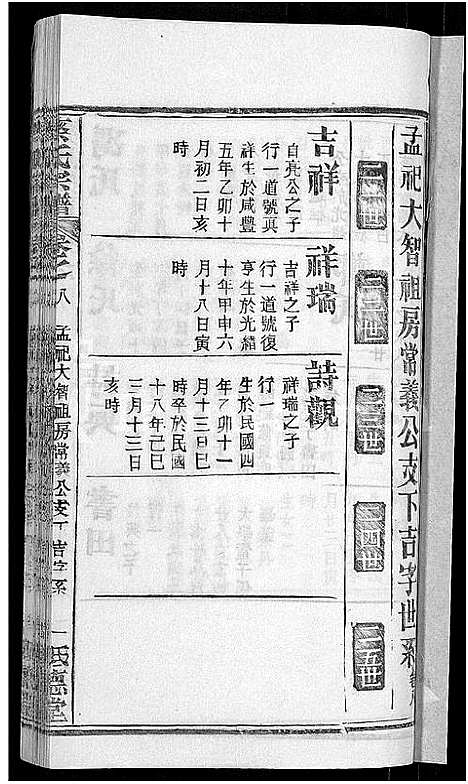 孟祀大智祖房常義公支下吉字世系卷八
二一世
二二世
二三世
二四世
二五世
吉祥
自亮公之子
行一道號真
祥生於咸豐
五年乙卯十
月初二日亥
時
祥瑞
吉祥之子
行一道號復
亨生於光緒
十年甲申六
月十八日寅
時
詩觀
祥瑞之子
行一
生於民國四
年乙卯十一
月十三日巳
時卒於民國
十八年己巳
三月十三日
亥時
氏宗譜 卷之八 孟祀大智祖房常義公支下吉字系 一